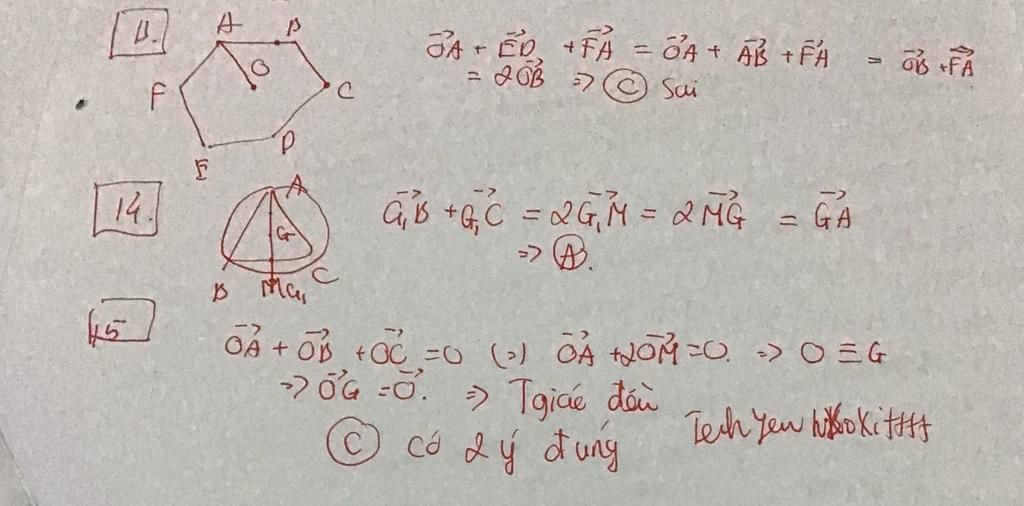 11.
A B
O
F C
D
E
$\vec{OA} + \vec{ED} + \vec{FA} = \vec{OA} + \vec{AB} + \vec{FA} = \vec{OB} + \vec{FA}$
$= 2\vec{OB}$ => Ⓒ Sai
14.
A
G
B M G₁ C
$\vec{G_1B} + \vec{G_1C} = 2\vec{G_1M} = 2\vec{MG} = \vec{GA}$
=> Ⓐ.
15
$\vec{OA} + \vec{OB} + \vec{OC} = 0$ (=) $\vec{OA} + 2\vec{OM} = 0.$ => O ≡ G
=> $\vec{OG} = \vec{O}.$ => Tgiác đều
Ⓒ có 2 ý đúng